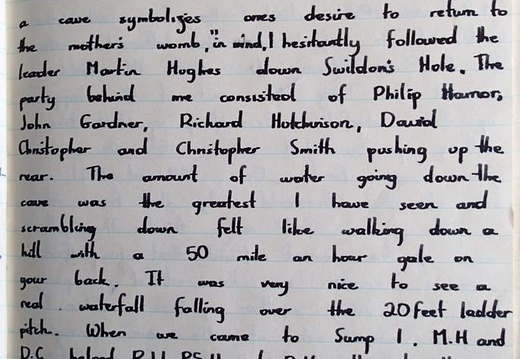 a cave symbolizes ones desire to return to
the mother's womb," in mind, I hesitantly followed the
leader Martin Hughes down Swildon's Hole. The
party behind me consisted of Philip Hamor,
John Gardner, Richard Hotchinson, David
Christopher and Christopher Smith pushing up the
rear. The amount of water going down the
cave was the greatest I have seen and
scrambling down felt like walking down a
hill with a 50 mile an hour gale on
your back. It was very nice to see a
real waterfall falling over the 20 feet ladder
pitch. When we came to Sump 1, M.H and
D.C helped R.H, P.S